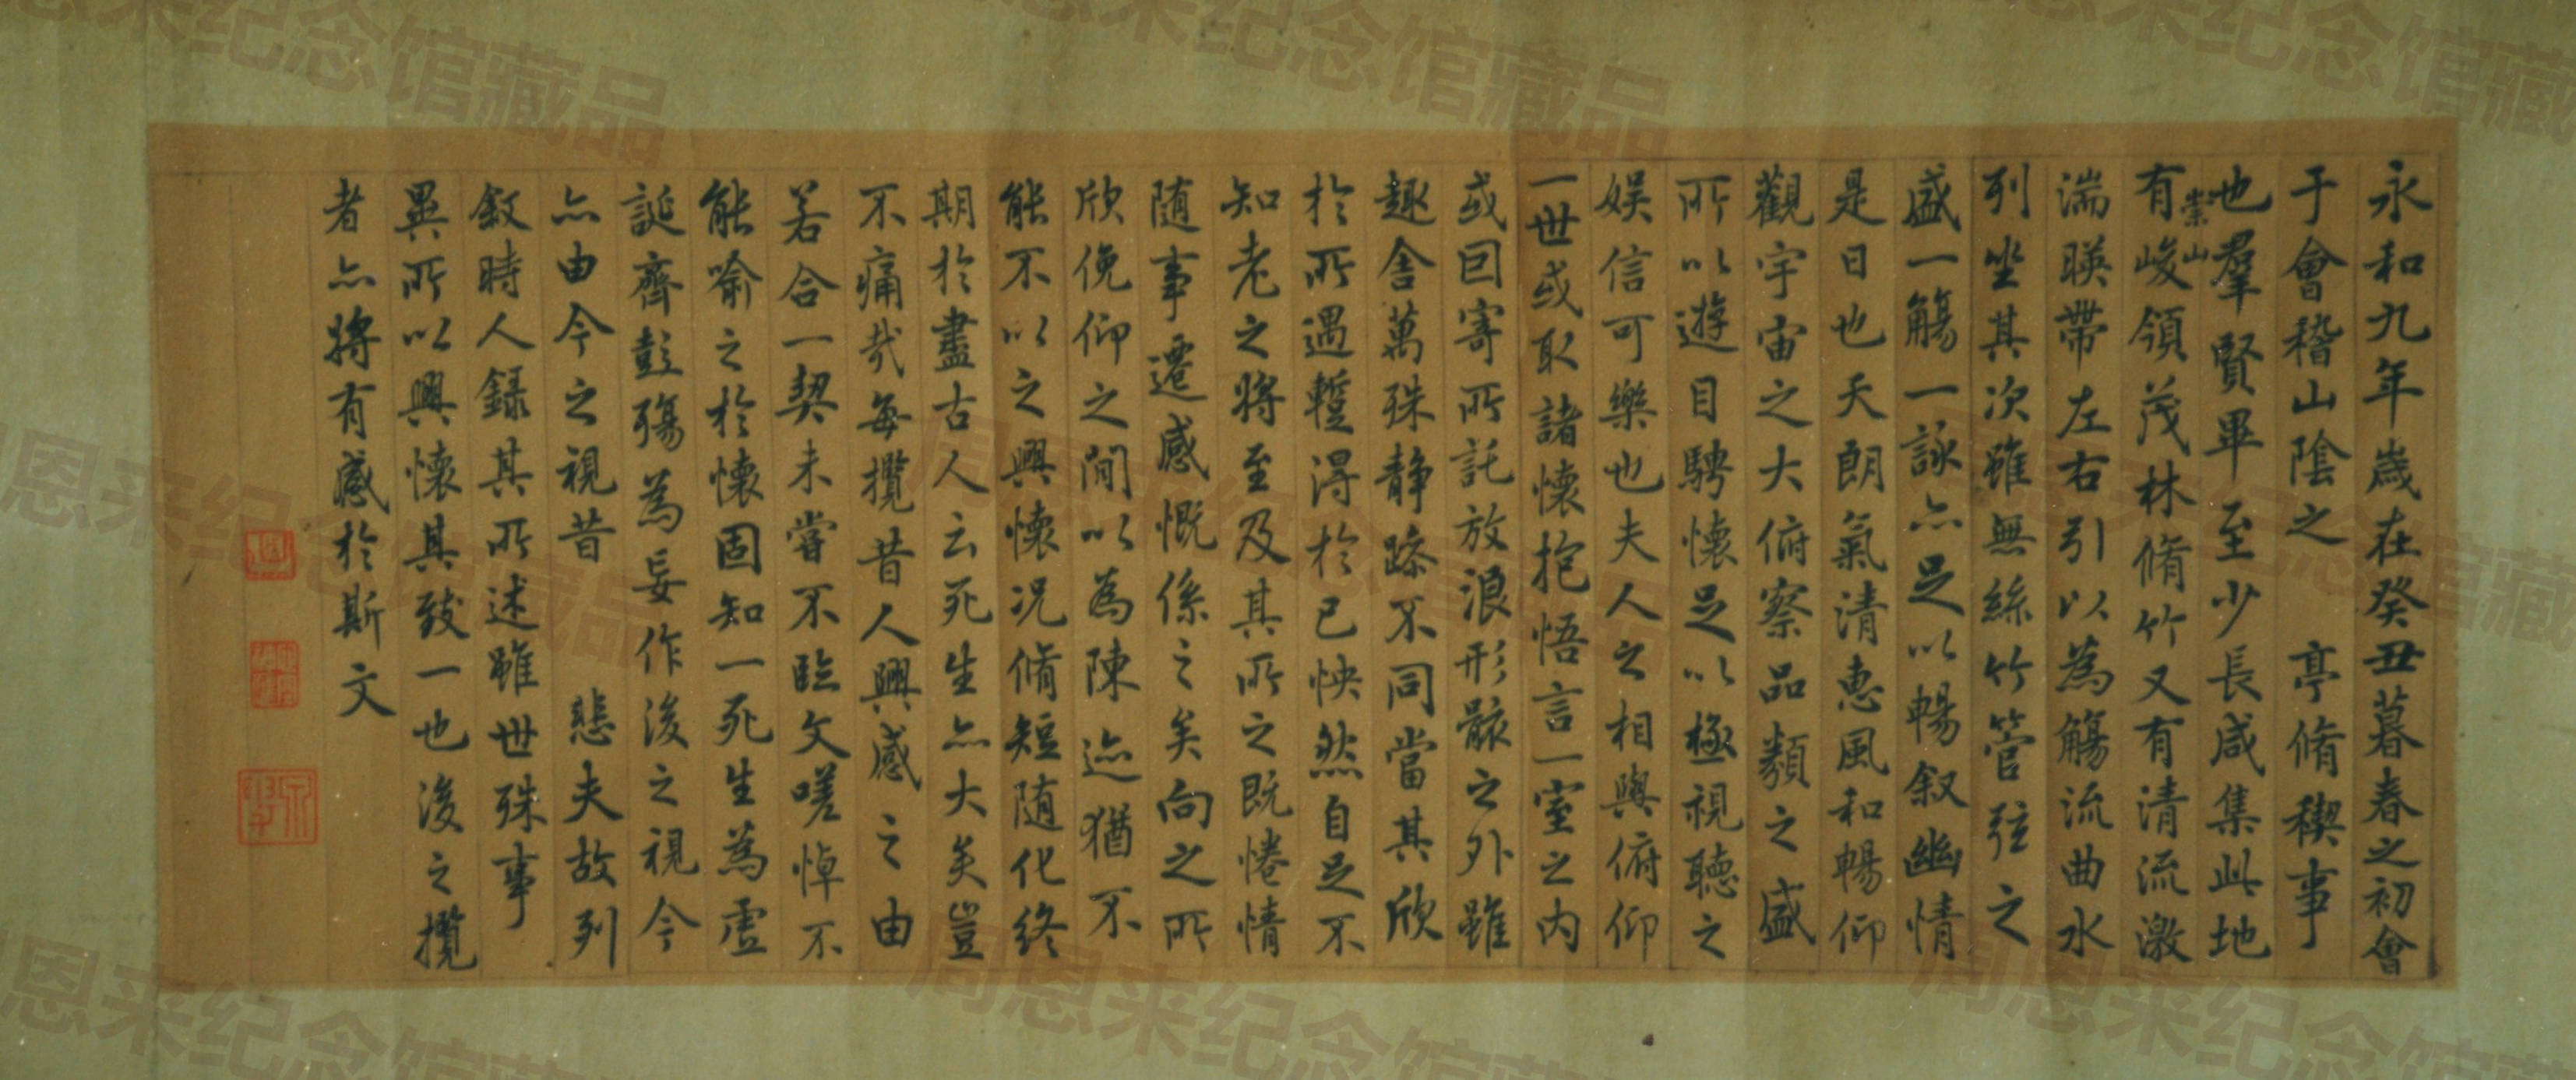 永和九年歲在癸丑暮春之初會
于會稽山陰之　亭脩稧事
也羣賢畢至少長咸集此地
有崇山峻領茂林脩竹又有清流激
湍暎帶左右引以為觴流曲水
列坐其次雖無絲竹管弦之
盛一觴一詠亦足以暢叙幽情
是日也天朗氣清惠風和暢仰
觀宇宙之大俯察品類之盛
所以遊目騁懷足以極視聽之
娛信可樂也夫人之相與俯仰
一世或取諸懷抱悟言一室之內
或因寄所託放浪形骸之外雖
趣舍萬殊靜躁不同當其欣
於所遇蹔得於己怏然自足不
知老之將至及其所之既惓情
隨事遷感慨係之矣向之所
欣俛仰之閒以為陳迹猶不
能不以之興懷況脩短隨化終
期於盡古人云死生亦大矣豈
不痛哉每攬昔人興感之由
若合一契未嘗不臨文嗟悼不
能喻之於懷固知一死生為虛
誕齊彭殤為妄作後之視今
亦由今之視昔　悲夫故列
敘時人錄其所述雖世殊事
異所以興懷其致一也後之攬
者亦將有感於斯文
周恩来纪念馆藏品